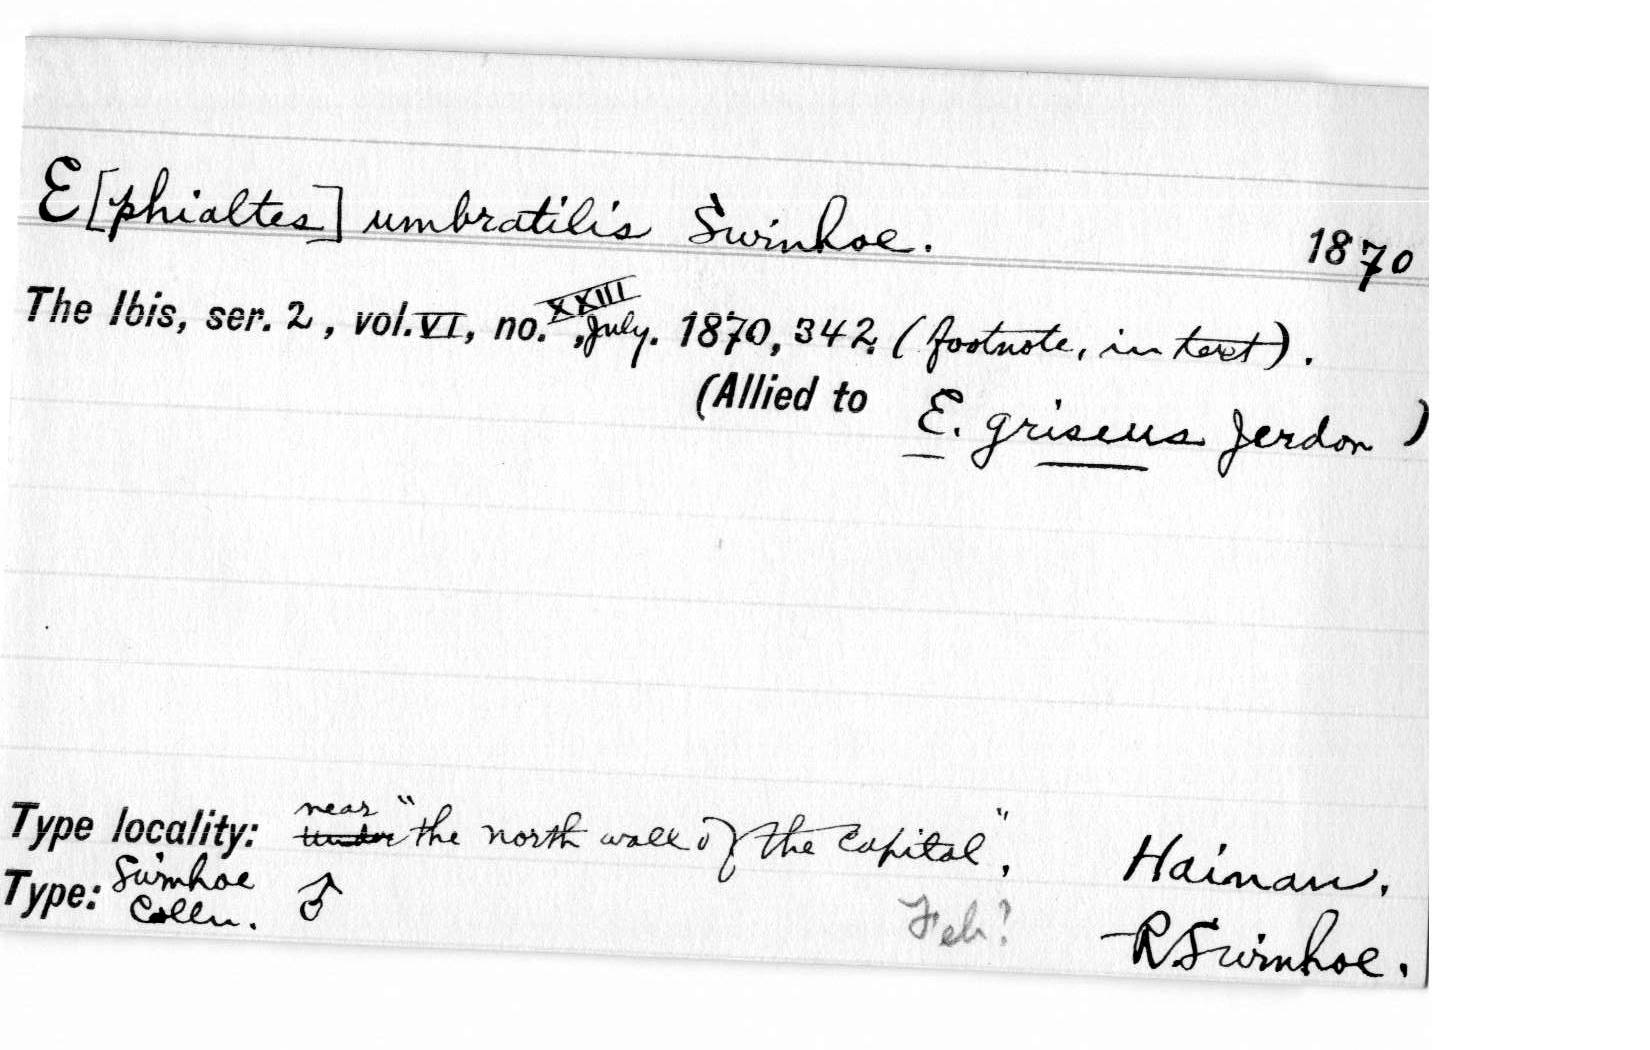 E[phialtes] umbratilis Swinhoe. 1870
The Ibis, ser. 2, vol. VI, no. XXIII, July. 1870, 342. (footnote, in text).
(Allied to E. griseus Jerdon )
Type locality: near "the north wall of the capital", Hainan.
Type: Swinhoe Colln. ♂ Feb? R Swinhoe.